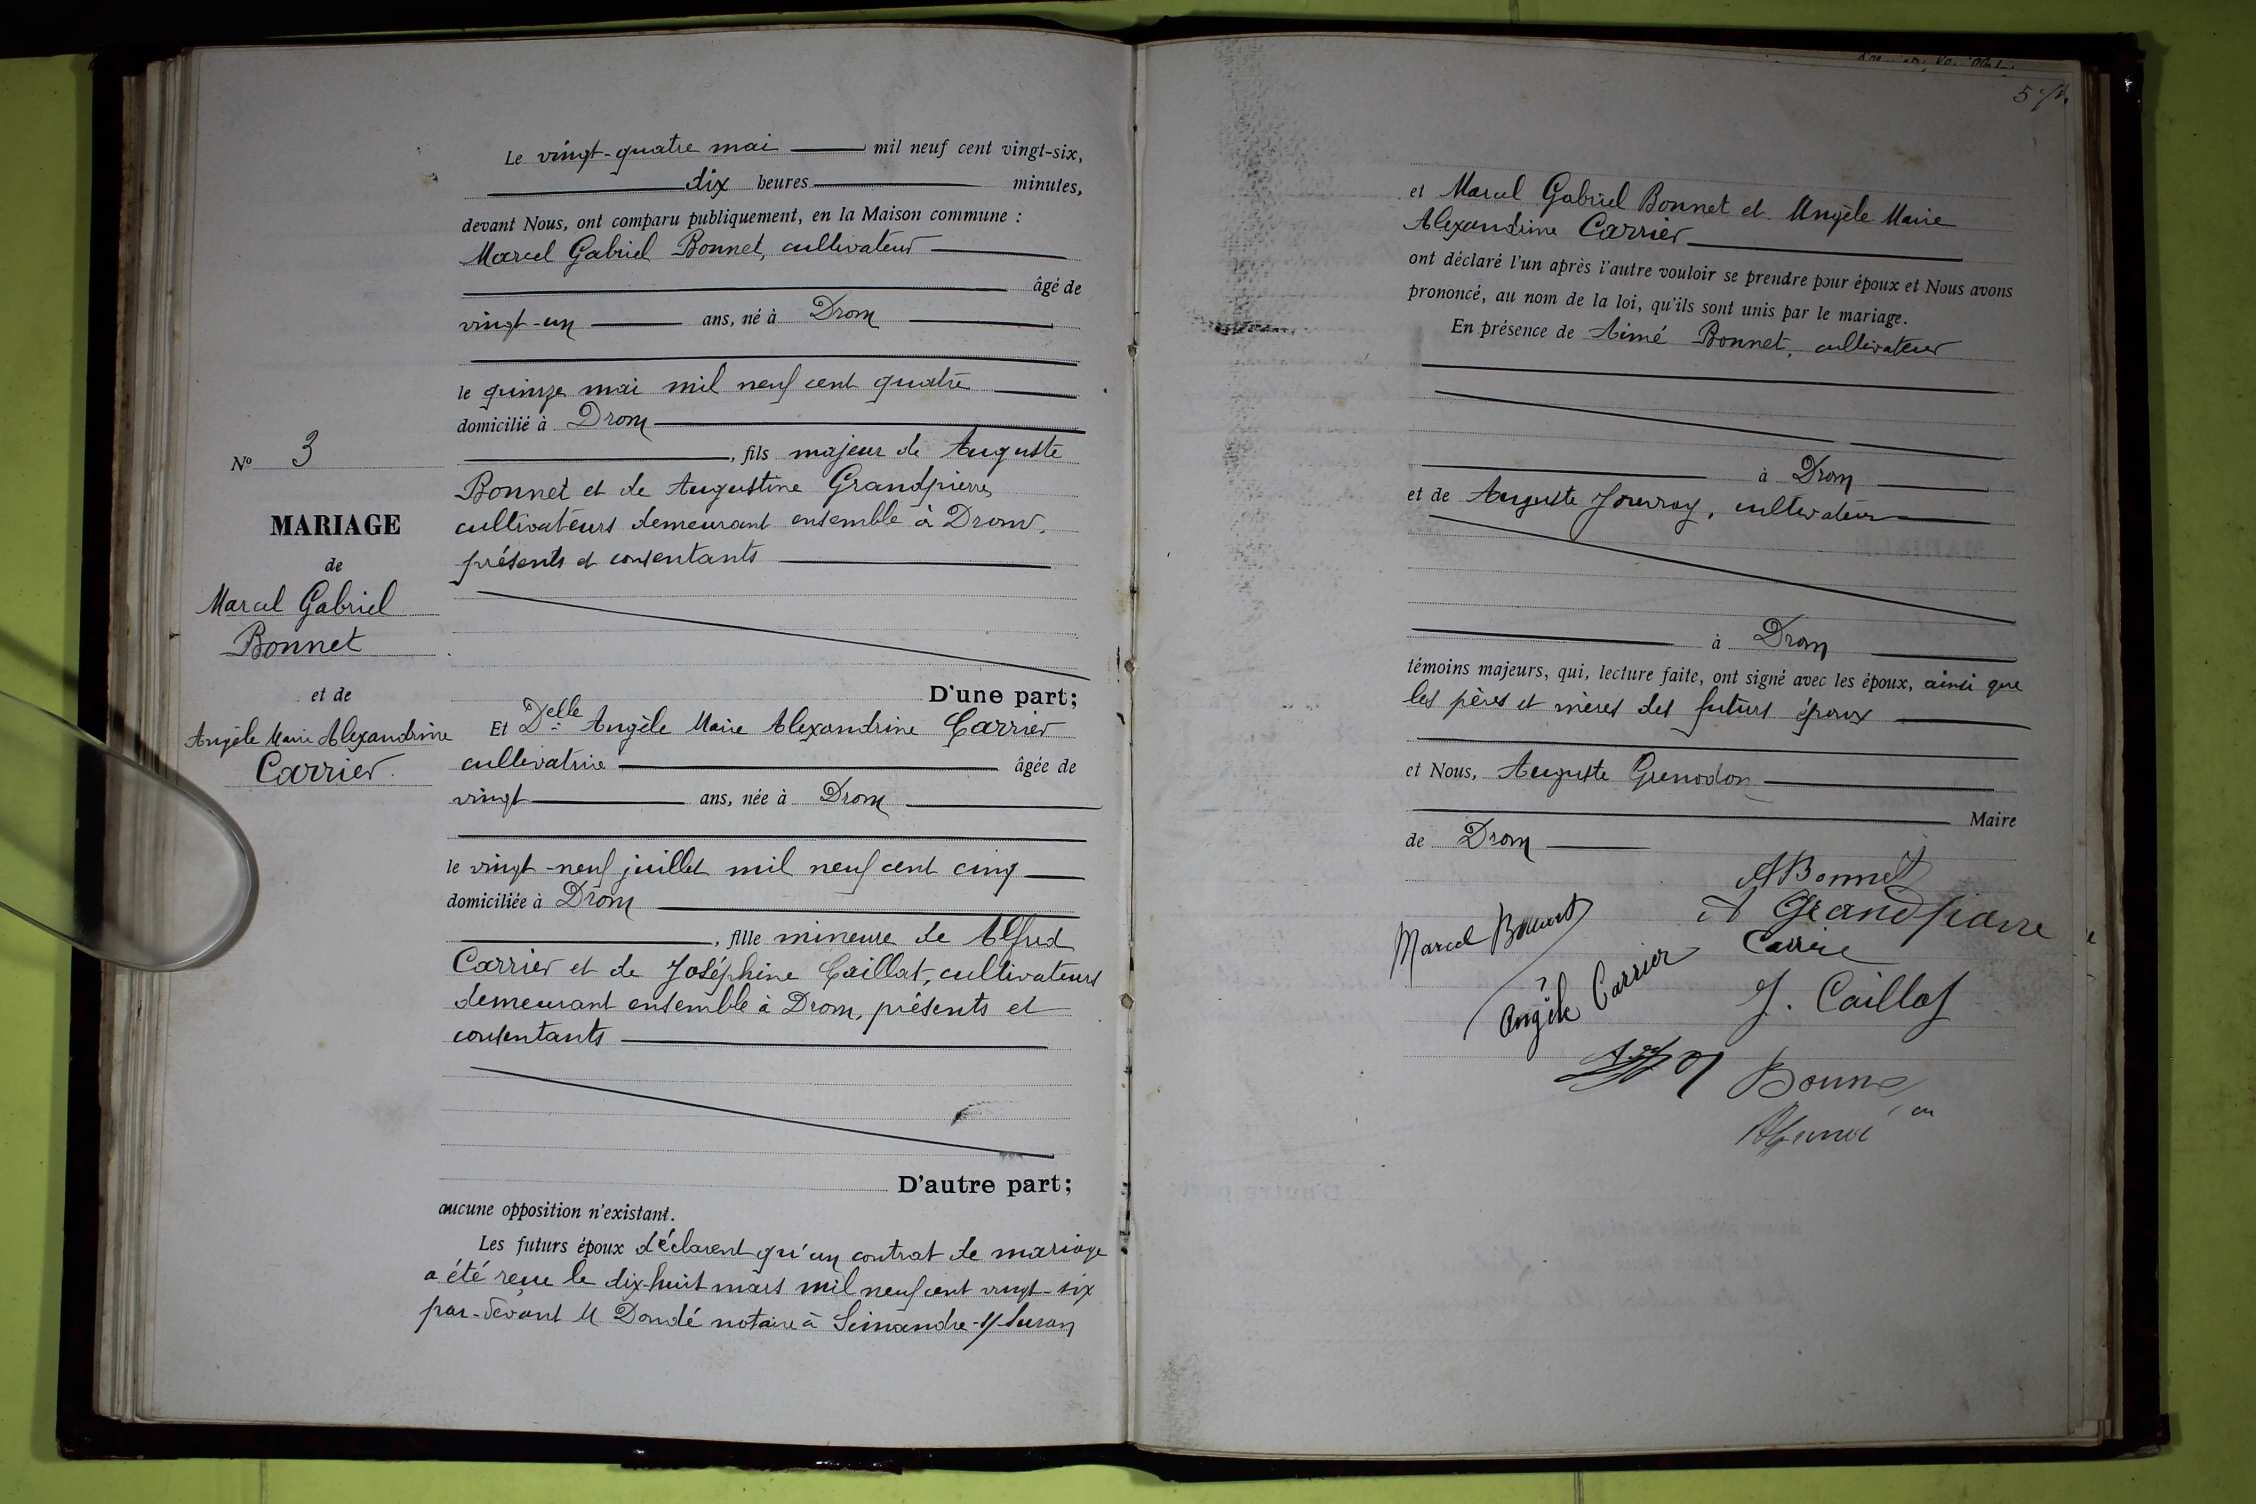 Le vingt-quatre mai mil neuf cent vingt-six,
dix heures minutes,
devant Nous, ont comparu publiquement, en la Maison commune :
Marcel Gabriel Bonnet, cultivateur
âgé de
vingt-un ans, né à Drom
le quinze mai mil neuf cent quatre
domicilié à Drom
, fils majeur de Auguste
Bonnet et de Augustine Grandpierre,
cultivateurs demeurant ensemble à Drom,
présents et consentants
N° 3
MARIAGE
de
Marcel Gabriel
Bonnet
et de
Angèle Marie Alexandrine
Carrier.
D'une part;
Et Delle Angèle Marie Alexandrine Carrier
cultivatrice âgée de
vingt ans, née à Drom
le vingt-neuf juillet mil neuf cent cinq
domiciliée à Drom
, fille mineure de Alfred
Carrier et de Joséphine Caillat, cultivateurs
demeurant ensemble à Drom, présents et
consentants
D'autre part;
aucune opposition n'existant.
Les futurs époux déclarent qu'un contrat de mariage
a été reçu le dix-huit mars mil neuf cent vingt-six
par-devant M Dondé notaire à Simandre-s/-Suran
et Marcel Gabriel Bonnet et Angèle Marie
Alexandrine Carrier
ont déclaré l'un après l'autre vouloir se prendre pour époux et Nous avons
prononcé, au nom de la loi, qu'ils sont unis par le mariage.
En présence de Aimé Bonnet, cultivateur
à Drom
et de Auguste Jouvray, cultivateur
à Drom
témoins majeurs, qui, lecture faite, ont signé avec les époux, ainsi que
les pères et mères des futurs époux
et Nous, Auguste Grenodon
Maire
de Drom
A Bonnet
A Grandpierre
Marcel Bonnet
Angèle Carrier
J. Caillat